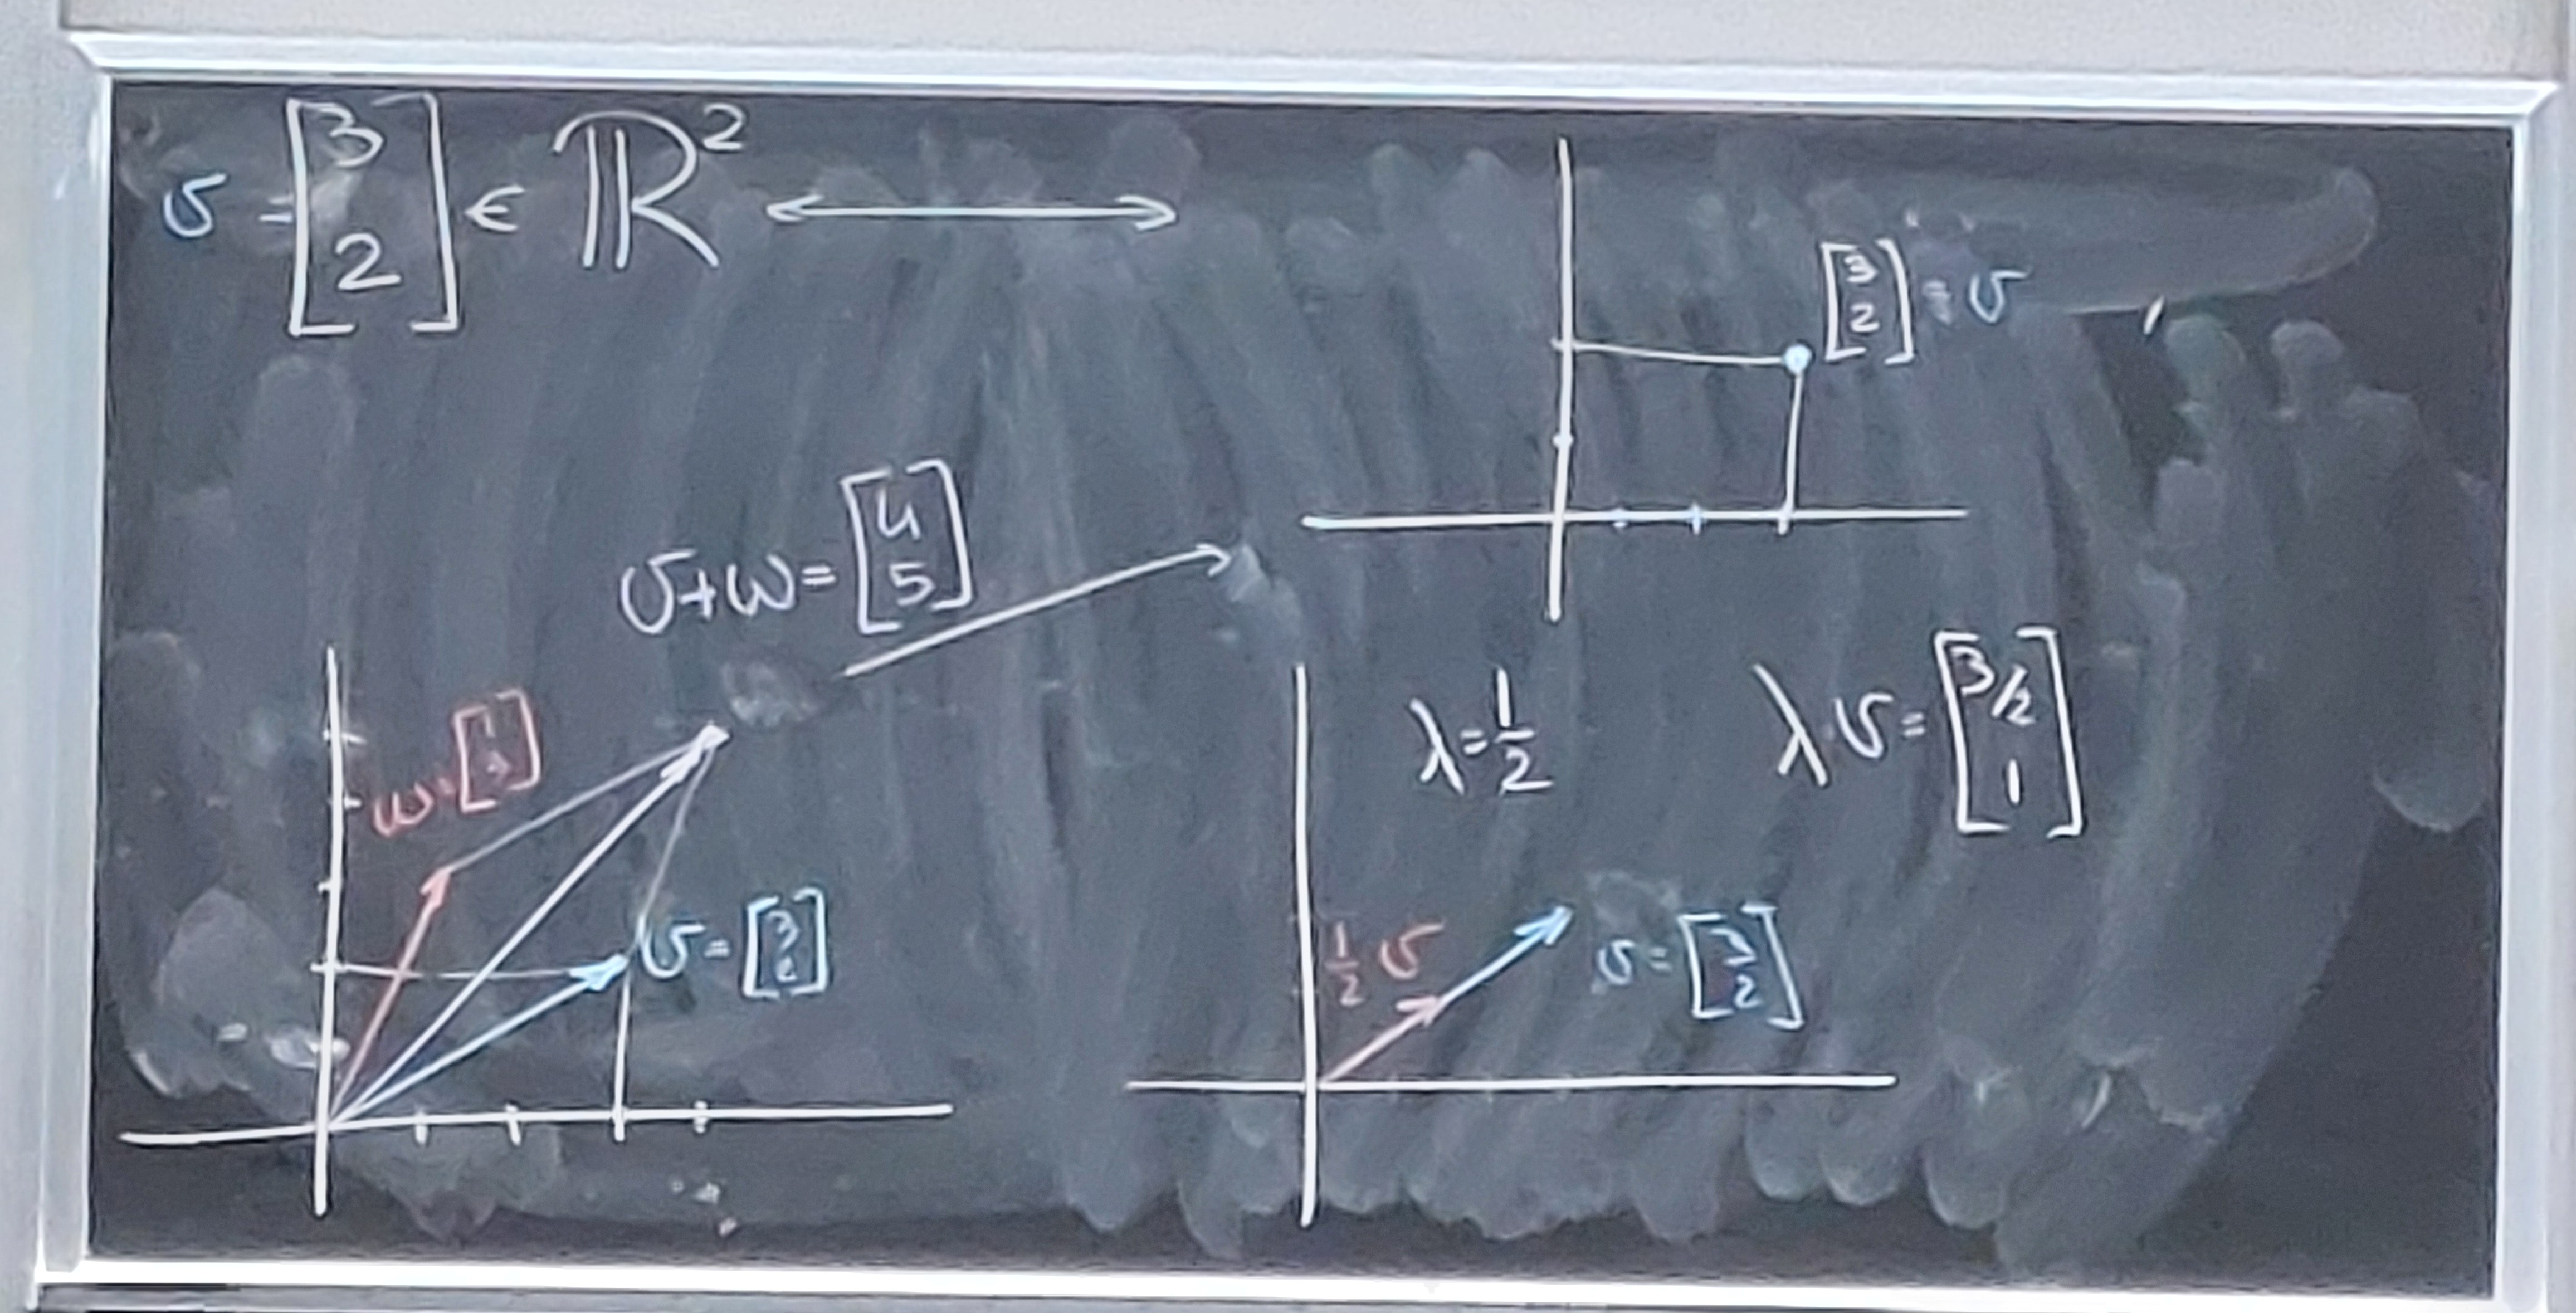 v = [3 2] ∈ ℝ²
[3 2] = v
v+w = [4 5]
w = [1 3]
v = [3 2]
λ = 1/2
λ·v = [3/2 1]
1/2 v
v = [3 2]